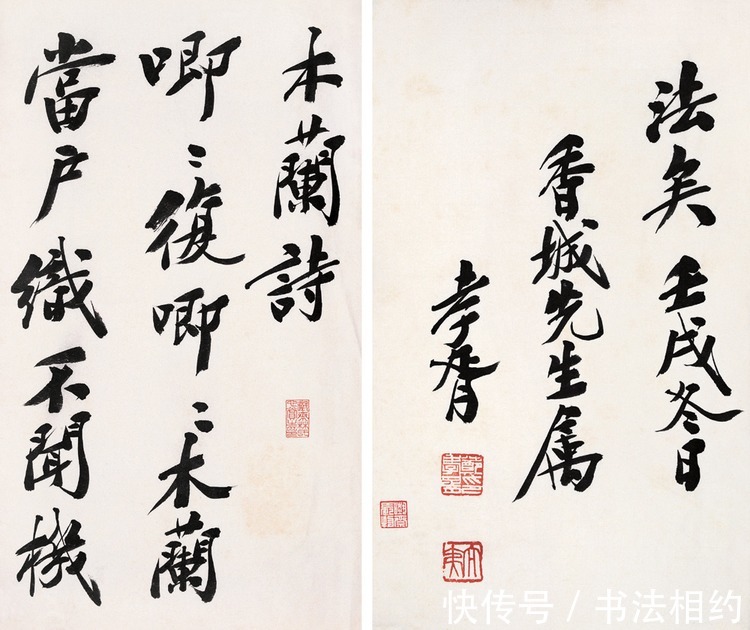 木蘭詩
唧〻復唧〻木蘭
當户織不聞機
法矣壬戌冬日
香城先生属
孝胥
快传号 / 书法相约